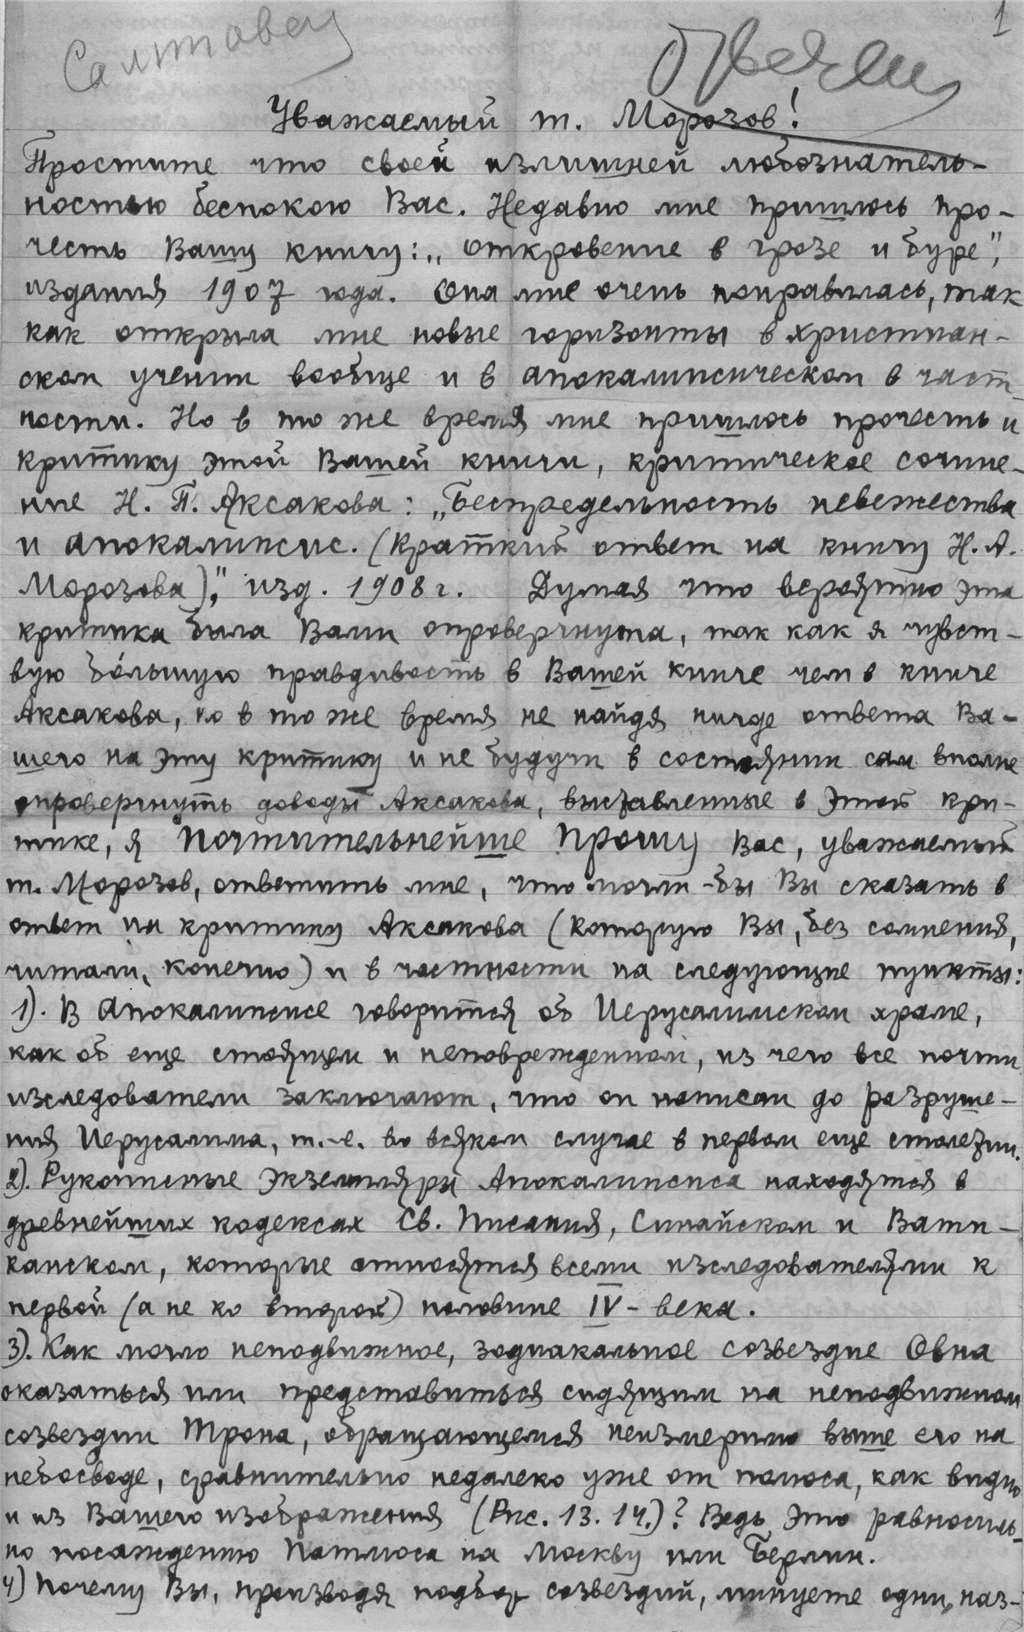 1
Салтовец
Ответил
Уважаемый т. Морозов!
Простите что своей излишней любознатель-
ностью беспокою Вас. Недавно мне пришлось про-
честь Вашу книгу: „Откровение в грозе и буре",
издания 1907 года. Она мне очень понравилась, так
как открыла мне новые горизонты в христиан-
ском учении вообще и в апокалипсическом в част-
ности. Но в то же время мне пришлось прочесть и
критику этой Вашей книги, критическое сочине-
ние Н. П. Аксакова: „Беспредельность невежества
и апокалипсис. (Краткий ответ на книгу Н. А.
Морозова)", изд. 1908 г. Думая что вероятно эта
критика была Вами опровергнута, так как я чувст-
вую бо́льшую правдивость в Вашей книге чем в книге
Аксакова, но в то же время не найдя нигде ответа Ва-
шего на эту критику и не будучи в состоянии сам вполне
опровергнуть доводы Аксакова, выставленные в этой кри-
тике, я почтительнейше прошу Вас, уважаемый
т. Морозов, ответить мне, что могли-бы Вы сказать в
ответ на критику Аксакова (которую Вы, без сомнения,
читали, конечно) и в частности на следующие пункты:
1). В Апокалипсисе говорится об Иерусалимском храме,
как об еще стоящем и неповрежденном, из чего все почти
изследователи заключают, что он написан до разруше-
ния Иерусалима, т.-е. во всяком случае в первом еще столетии.
2). Рукописные экземпляры Апокалипсиса находятся в
древнейших кодексах Св. Писания, Синайском и Вати-
канском, которые относятся всеми изследователями к
первой (а не ко второй) половине IV-века.
3). Как могло неподвижное, зодиакальное созвездие Овна
оказаться или представиться сидящим на неподвижном
созвездии Трона, обращающемся неизмеримо выше его на
небосводе, сравнительно недалеко уже от полюса, как видно
и из Вашего изображения (Рис. 13. 14.)? Ведь это равносиль-
но посаждению Патмоса на Москву или Берлин.
4) Почему Вы, производя подбор созвездий, минуете одни, наз-